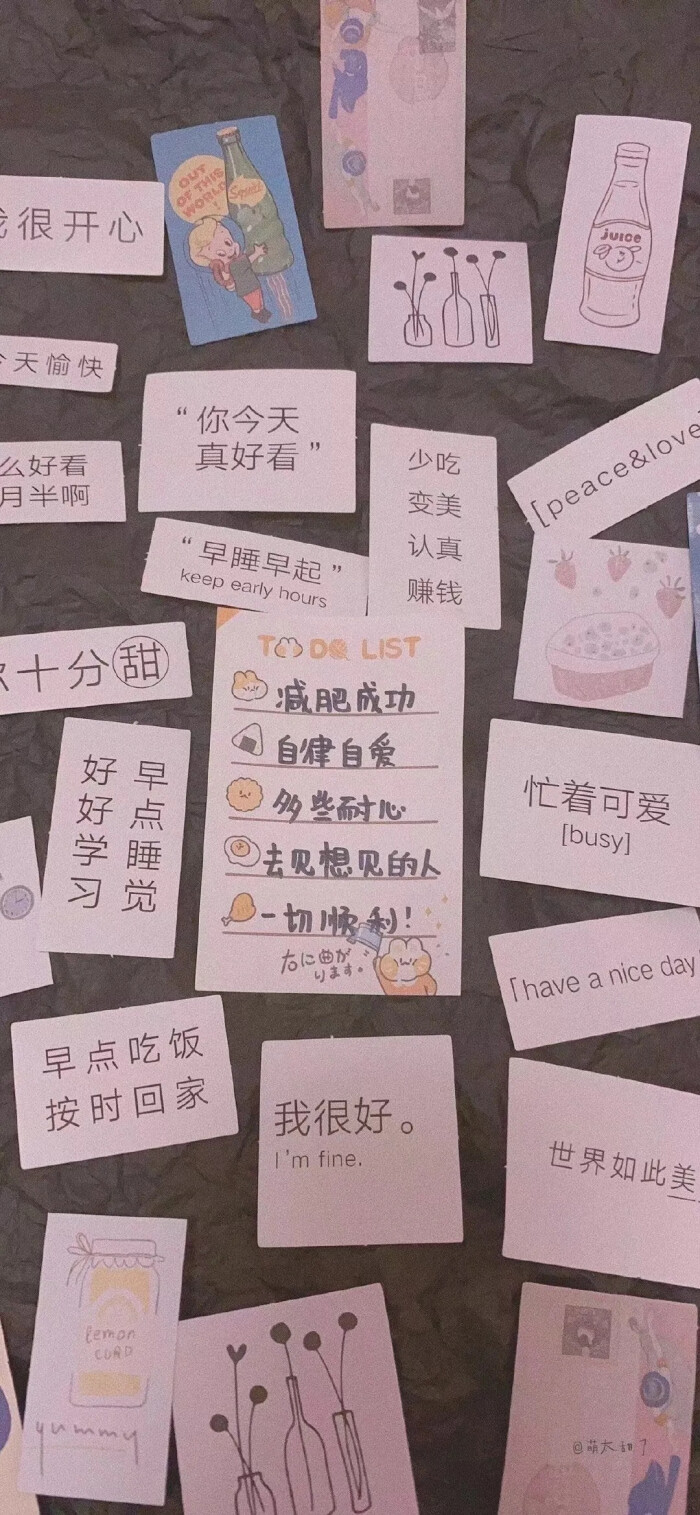 OUT
OF THIS
WORLD
!
Squirt
juice
我很开心
今天愉快
“你今天
真好看”
么好看
月半啊
少吃
变美
认真
赚钱
[peace&love
“早睡早起”
keep early hours
你十分甜
TO DO LIST
减肥成功
自律自爱
多些耐心
去见想见的人
一切顺利!
右に曲が
ります。
早点睡觉
好好学习
忙着可爱
[busy]
[have a nice day
早点吃饭
按时回家
我很好。
I'm fine.
世界如此美
lemon
CURD
yummy
@萌太甜了